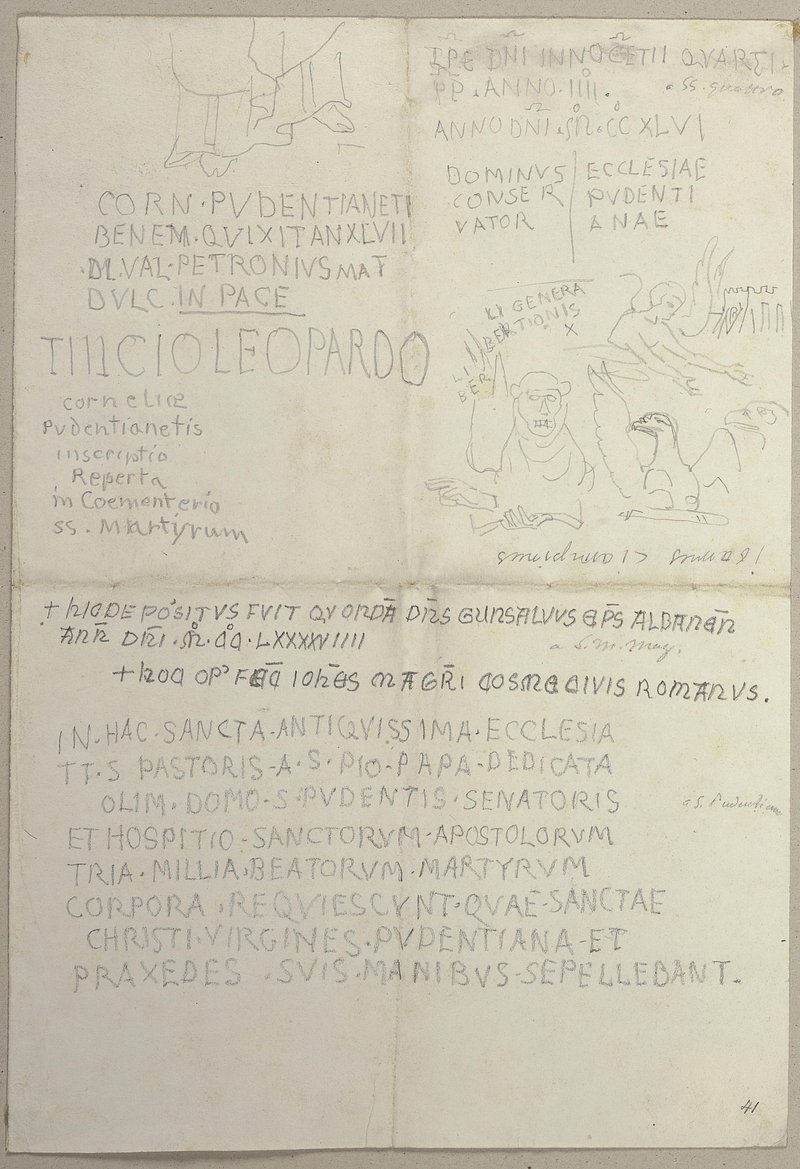 CORN·PVDENTIANETI
BENEM·QVIXITANXLVII
DL·VAL·PETRONIVS MAT
DVLC·IN PACE
LEOPARDO
corneliæ
Pvdentianetis
inscriptio
Reperta
in Coementerio
ss. Martyrum
TPE DÑI INNOCETII QVARTI
PP. ANNO. IIII.
a SS. quattro
ANNO DÑI. M̊. C̊C XLVI
DOMINVS | ECCLESIAE
CONSER | PVDENTI
VATOR | ANAE
LI GENERA
BERTIONIS
X
LI
BER
+ hIC DEPOSITVS FVIT QVONDĀ DN̄S GUNSALVUS EP̄S ALBANEN̄
ANN̄ DN̄I. M̊. CC̊. LXXXXVIIII
a S. M. Mag.
+ hOC OP' FEC̄ IOhĒS MAGR̄I COSME CIVIS ROMANVS.
IN·HAC·SANCTA·ANTIQVISSIMA·ECCLESIA
TT·S PASTORIS·A·S·PIO·PAPA·DEDICATA
OLIM·DOMO·S·PVDENTIS·SENATORIS
a S. Pudentiana
ET HOSPITIO·SANCTORVM·APOSTOLORVM
TRIA·MILLIA·BEATORVM·MARTYRVM
CORPORA·REQVIESCVNT·QVAE·SANCTAE
CHRISTI·VIRGINES·PVDENTIANA·ET
PRAXEDES·SVIS·MANIBVS·SEPELLEBANT.
41